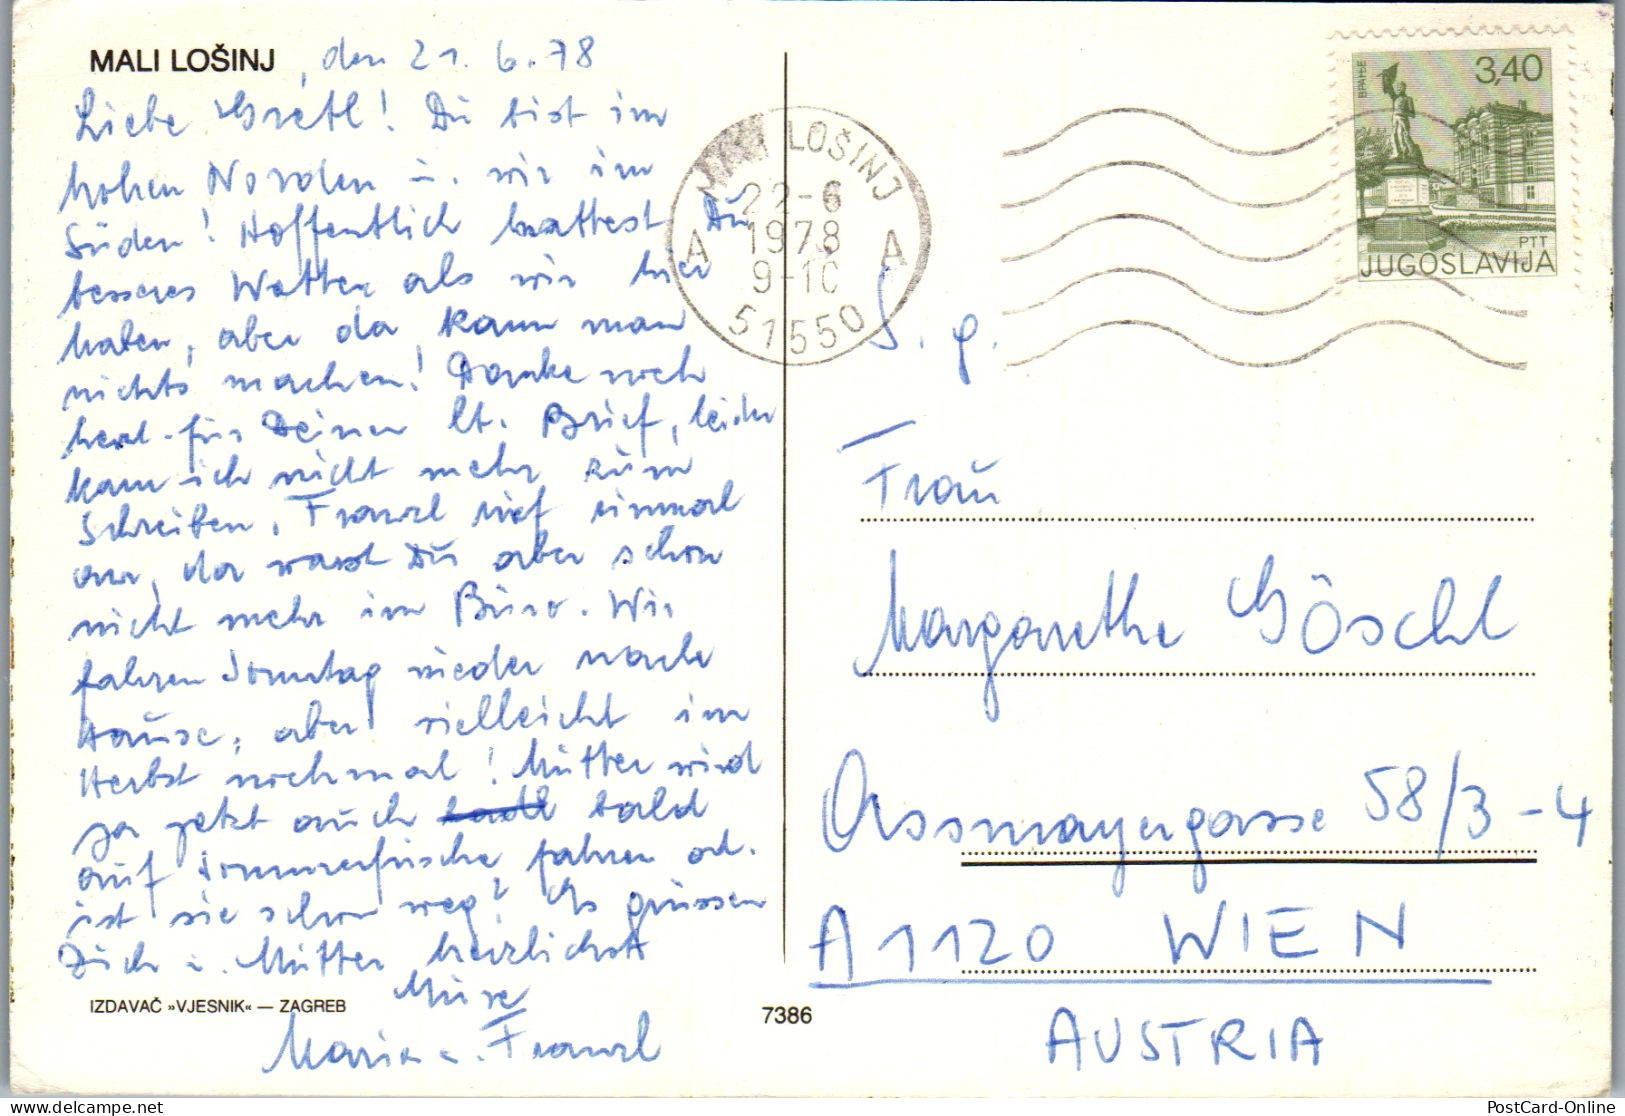 MALI LOŠINJ, den 21.6.78
Liebe Gretl! Du bist im
hohen Norden u. wir im
Süden! Hoffentlich hattest Du
besseres Wetter als wir hier
haben, aber da kann man
nichts machen! Danke noch
herzl. für Deinen lb. Brief, leider
kam ich nicht mehr zum
Schreiben. Franzl rief einmal
an, da warst Du aber schon
nicht mehr im Büro. Wir
fahren Sonntag wieder nach
Hause, aber vielleicht im
Herbst nochmal! Mutter wird
ja jetzt auch bald
auf Sommerfrische fahren od.
ist sie schon weg? Es grüssen
Dich u. Mutter herzlichst
Maria u. Franzl
IZDAVAČ »VJESNIK« — ZAGREB
7386
MALI LOŠINJ
22-6
1978
9-10
A A
51550
ВРАЊЕ
3,40
PTT
JUGOSLAVIJA
S. g.
Frau
Margarethe Göschl
Assmayergasse 58/3-4
A 1120 WIEN
AUSTRIA
PostCard-Online
delcampe.net